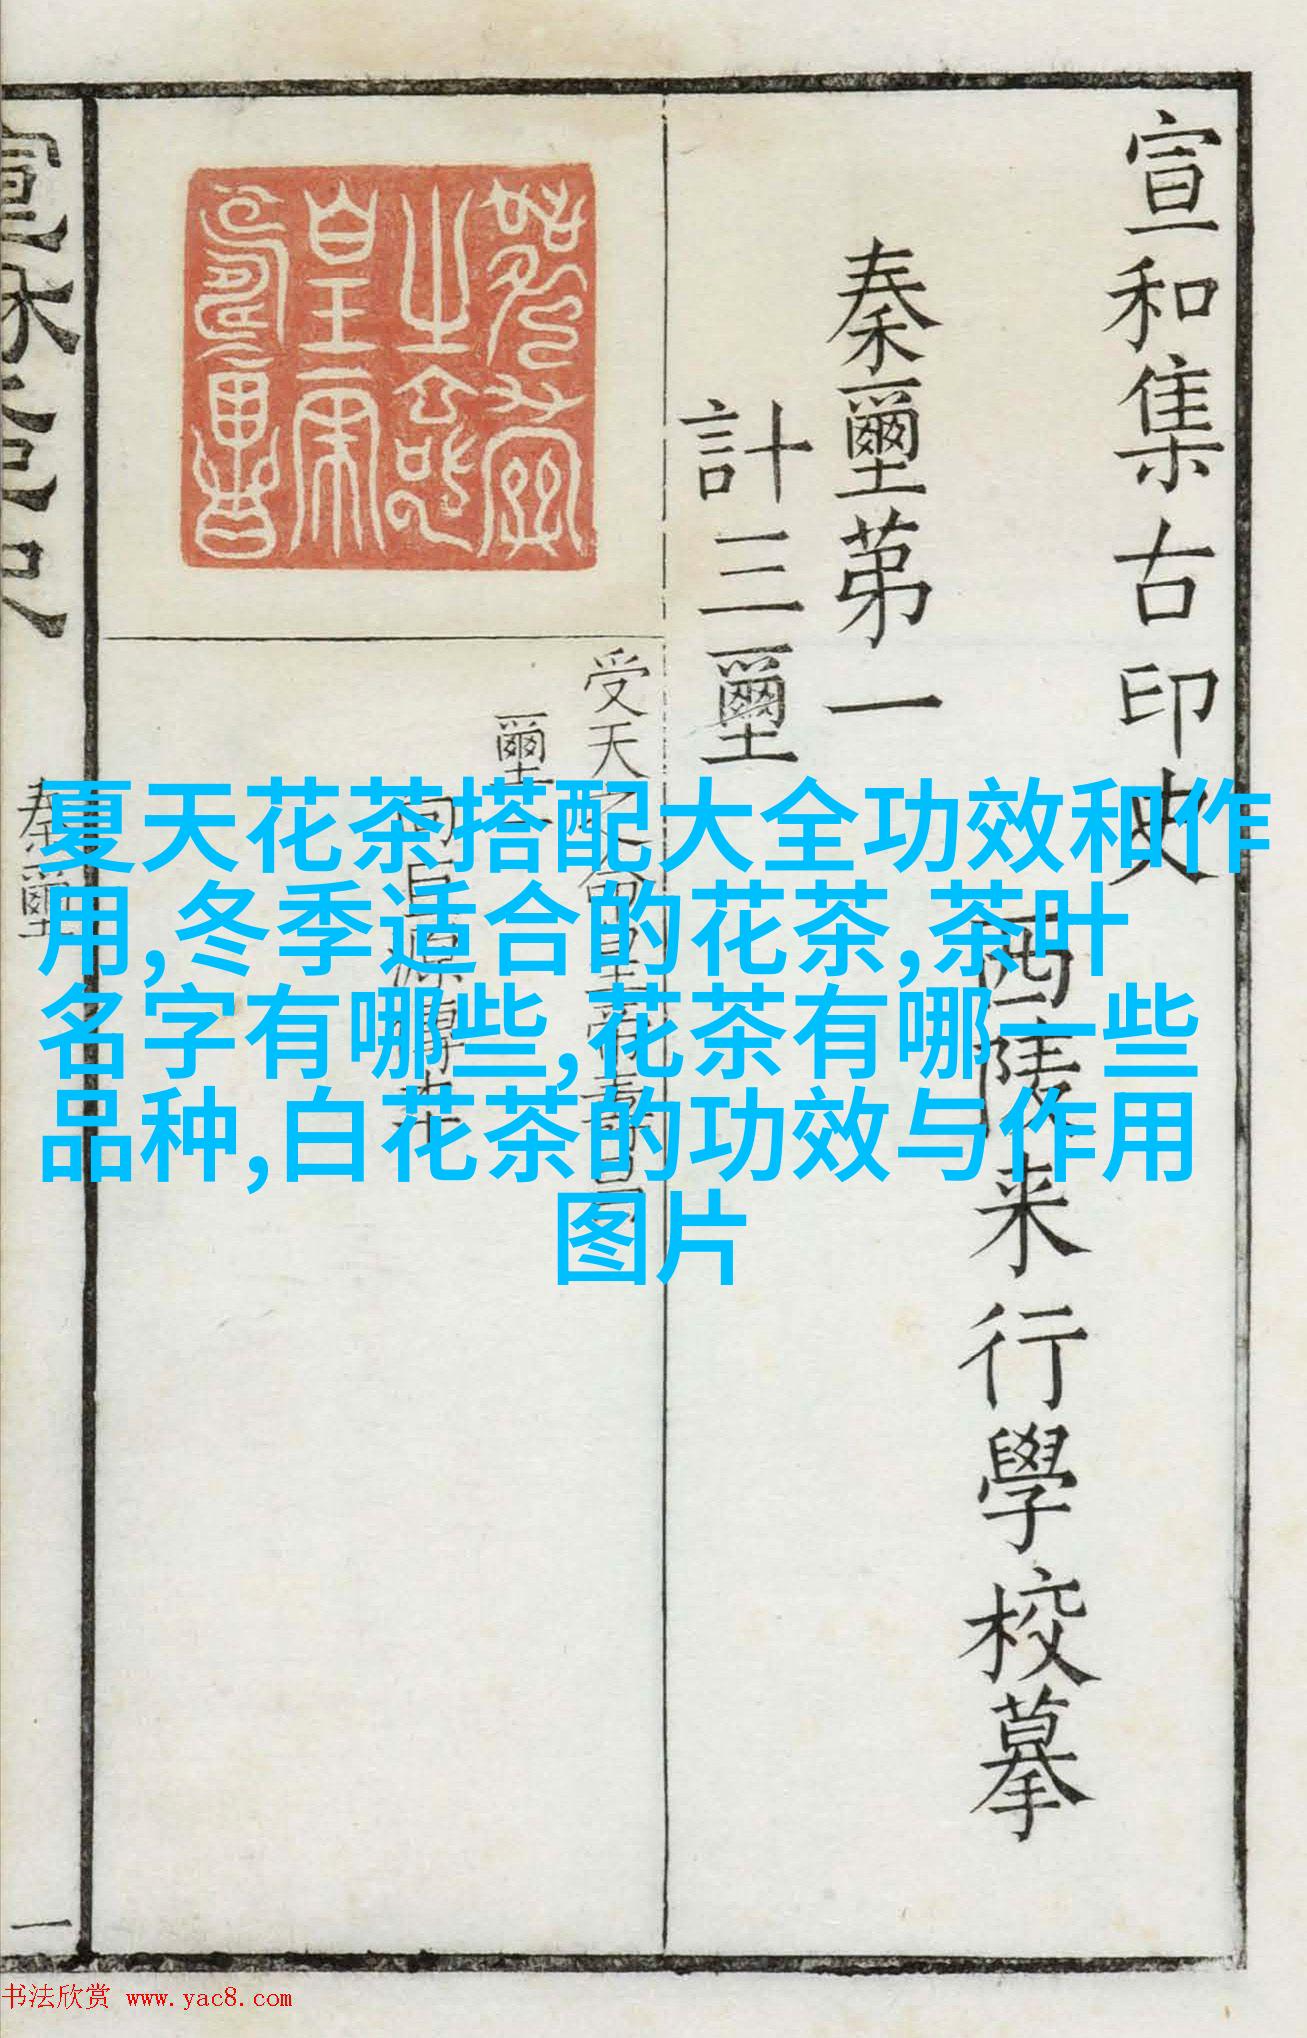 宣和集古印史
西陵来行學校摹
秦璽第一
計三璽
受天之命皇帝壽昌
璽
向巨源傳本
秦璽
一
夏天花茶搭配大全功效和作
用,冬季适合的花茶,茶叶
名字有哪些,花茶有哪一些
品种,白花茶的功效与作用
图片
书法欣赏 www.yac8.com